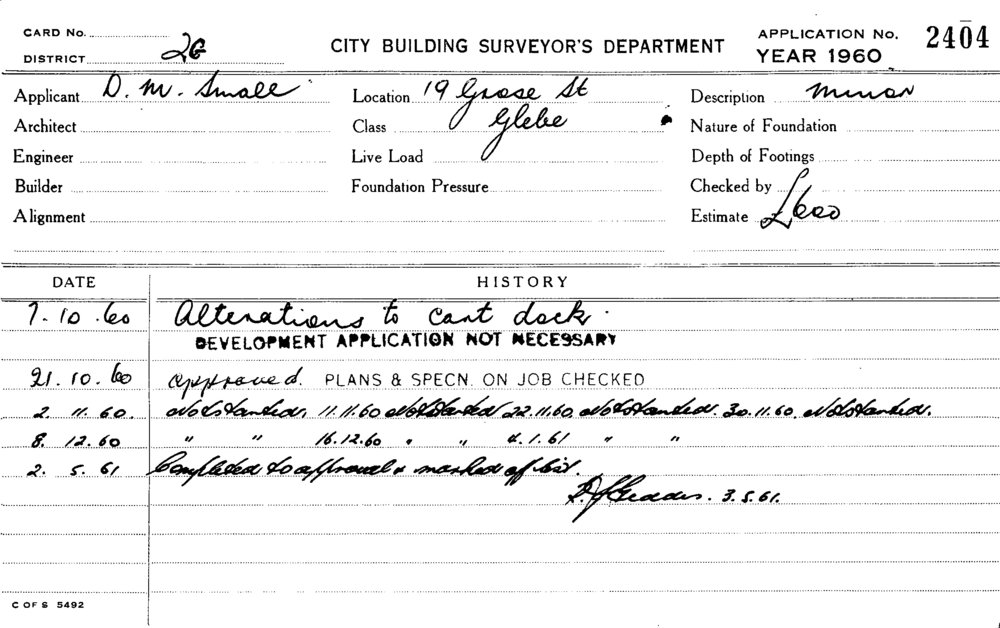 CARD No.
DISTRICT 2G
CITY BUILDING SURVEYOR'S DEPARTMENT
APPLICATION No. 2404
YEAR 1960
Applicant D. M. Small
Location 19 Grose St
Description Minor
Architect
Class Glebe
Nature of Foundation
Engineer
Live Load
Depth of Footings
Builder
Foundation Pressure
Checked by
Alignment
Estimate £600
DATE
HISTORY
7.10.60 Alterations to cart dock.
DEVELOPMENT APPLICATION NOT NECESSARY
21.10.60 approved. PLANS & SPECN. ON JOB CHECKED
2. 11. 60. Not started. 11.11.60 Not started 22.11.60. Not started. 30.11.60. Not started.
8. 12. 60 " " 16.12.60 " " 4.1.61 " "
2. 5. 61 Completed to approval & marked off list.
Geddes. 3.5.61.
C OF S 5492